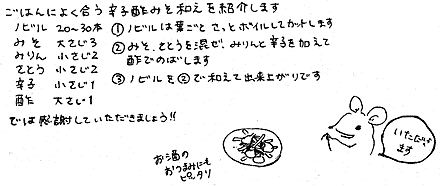 ごはんによく合う辛子酢みそ和えを紹介します
ノビル 20~30本
みそ 大さじ3
みりん 小さじ2
さとう 小さじ2
辛子 小さじ1
酢 大さじ1
①ノビルは葉ごとさっとボイルしてカットします
②みそ、さとうを混ぜ、みりんと辛子を加えて
酢でのばします
③ノビルを②で和えて出来上がりです
では感謝していただきましょう!!
お酒の
おつまみにも
ピッタリ
いただき
ます